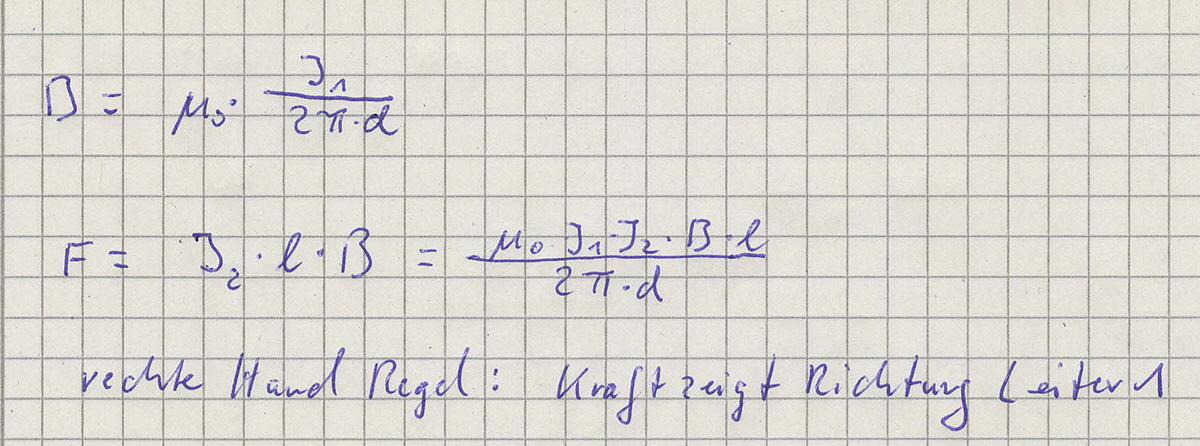 B = μ₀ · I₁ / (2π·d)
F = I₂ · l · B = μ₀ · I₁ · I₂ · B · l / (2π·d)
rechte Hand Regel: Kraft zeigt Richtung Leiter 1